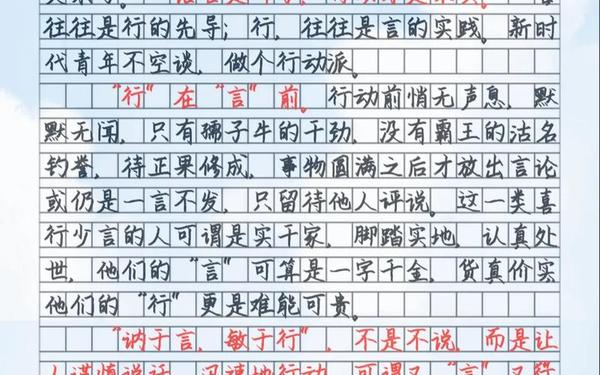 往往是行的先导；行，往往是言的实践。新时
代青年不空谈，做个行动派。
“行”在“言”前。行动前悄无声息，默
默无闻，只有孺子牛的干劲，没有霸王的沽名
钓誉，待正果修成，事物圆满之后才放出言论
或仍是一言不发，只留待他人评说。这一类喜
行少言的人可谓是实干家，脚踏实地，认真处
世，他们的“言”可算是一字千金，货真价实
他们的“行”更是难能可贵。
“讷于言，敏于行”，不是不说，而是让
人谨慎说话，迅速地行动，可谓又“言”又符